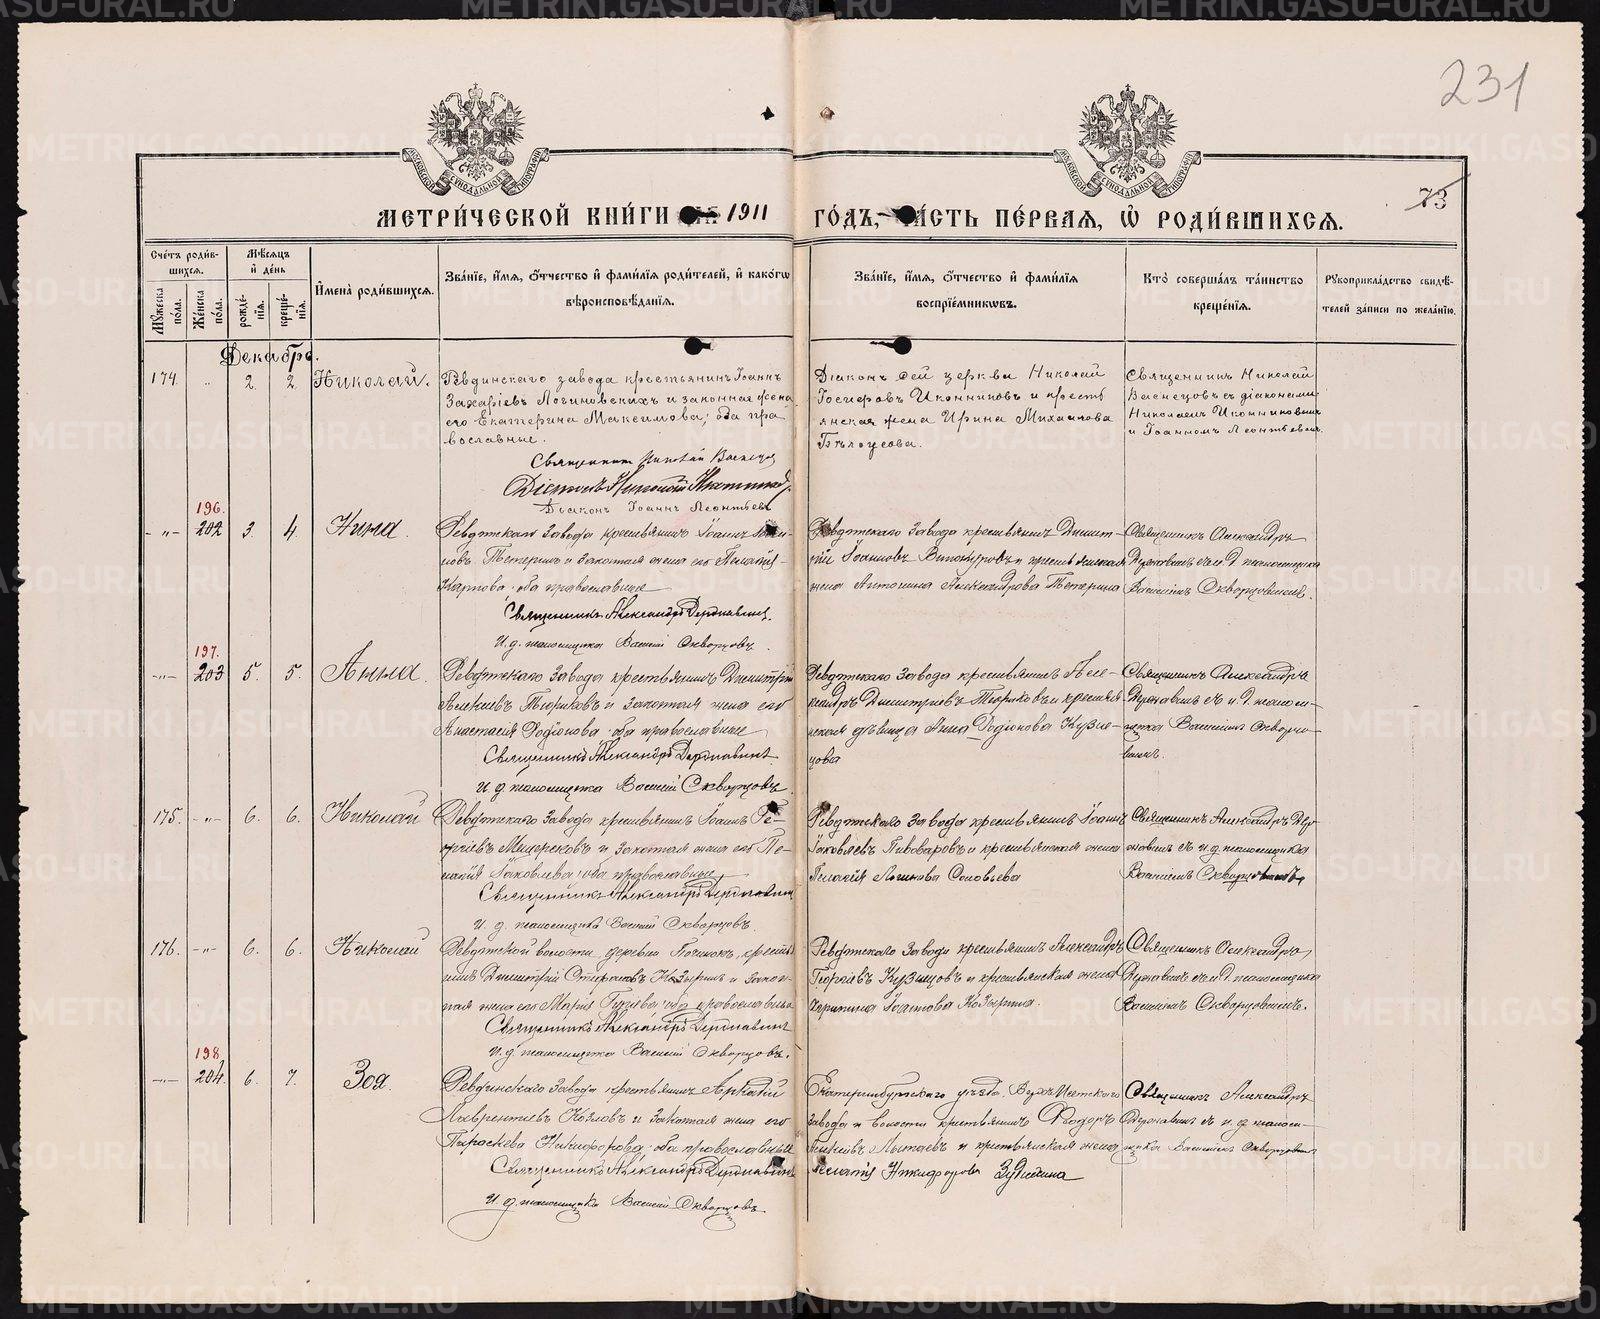 231
73
МЕТРИ́ЧЕСКОЙ КНИ́ГИ 1911 ГО́ДЪ, ЧА́СТЬ ПЕ́РВАЯ, Ѽ РОДИ́ВШИХСЯ.
Сче́тъ роди́в-
шихся.
Мꙋ́жеска по́ла.
Же́нска по́ла.
Мѣ́сяцъ
и҆ де́нь
рожде́-
нїя.
креще́-
нїя.
И҆мена̀ роди́вшихся.
Зва́нїе, и҆́мя, ѻ҆́тчество и҆ фами́лїя роди́телей, и҆ како́гѡ
вѣроисповѣ́данїя.
Зва́нїе, и҆́мя, ѻ҆́тчество и҆ фами́лїя
воспрїе́мникѡвъ.
Кто̀ соверша́лъ та́инство
креще́нїя.
Рꙋкоприкла́дство свидѣ́-
телей за́писи по жела́нїю.
Декабрь.
174. „ 2. 2. Николай.
Ревдинскаго завода крестьянинъ Іоаннъ
Захаріевъ Логиновскихъ и законная жена
его Екатерина Максимова; оба пра
вославные.
Священникъ Николай Васнецов
Діаконъ Николай Иконников
Діаконъ Іоаннъ Леонтьевъ
Діаконъ сей церкви Николай
Иконниковъ и кресть
янская жена Ирина Михаилова
Бѣлоусова.
Священникъ Николай
Васнецовъ съ діаконами
Николаемъ Иконниковымъ
и Іоанномъ Леонтьевымъ.
196.
- „ - 202 3. 4. Нина.
Ревдинскаго завода крестьянинъ Іоаннъ
Тетеринъ и законная жена его Пелагія
оба православные
Священникъ Александръ Державинъ.
И. д. псаломщика Василій Скворцовъ.
Ревдинскаго завода крестьянинъ Димит-
рій Іоанновъ Винокуровъ и крестьянская
жена Антонина Александрова Тетерина
Священникъ Александръ
Державинъ съ и. д. псаломщика
Василіемъ Скворцовымъ.
197.
- „ - 203 5. 5. Анна.
Ревдинскаго завода крестьянинъ Димитрій
Алексіевъ Тюриковъ и законная жена его
Анастасія Родіонова оба православные
Священникъ Александръ Державинъ
И. д. псаломщика Василій Скворцовъ.
Ревдинскаго завода крестьянинъ Алек-
сандръ Димитріевъ Тюриковъ и крестьян
ская дѣвица Анна Родіонова Кузне-
цова
Священникъ Александръ
Державинъ съ и. д. псалом-
щика Василіемъ Скворцо-
вымъ.
175. - „ - 6. 6. Николай
Ревдинскаго завода крестьянинъ Іоаннъ Ге-
оргіевъ Мещеряковъ и законная жена его Пе-
лагія Іаковлева оба православные
Священникъ Александръ Державинъ
И. д. псаломщика Василій Скворцовъ.
Ревдинскаго завода крестьянинъ Іоаннъ
Іаковлевъ Пивоваровъ и крестьянская жена
Пелагія Логинова Соловьева
Священникъ Александръ Дер
жавинъ съ и. д. псаломщика
Василіемъ Скворцовымъ
176. - „ - 6. 6. Николай
Ревдинской волости деревни Починокъ, крестья
нинъ Димитрій Стефановъ Козыринъ и закон-
ная жена его Марія оба православные
Священникъ Александръ Державинъ
И. д. псаломщика Василій Скворцовъ.
Ревдинскаго завода крестьянинъ Александръ
Георгіевъ Кузнецовъ и крестьянская жена
Іоаннова Козырина.
Священникъ Александръ
Державинъ съ и. д. псаломщика
Василіемъ Скворцовымъ.
198.
- „ - 204. 6. 7. Зоя.
Ревдинскаго завода крестьянинъ Аркадій
Лаврентіевъ Козловъ и законная жена его
Параскева Никифорова оба православные
Священникъ Александръ Державинъ
И. д. псаломщика Василій Скворцовъ
Екатеринбургскаго уѣзда, Верхъ-Исетскаго
завода и волости крестьянинъ Ѳеодоръ
и крестьянская жена
Никифорова
Священникъ Александръ
Державинъ съ и. д. псалом-
щика Василіемъ Скворцовымъ
METRIKI.GASO-URAL.RU